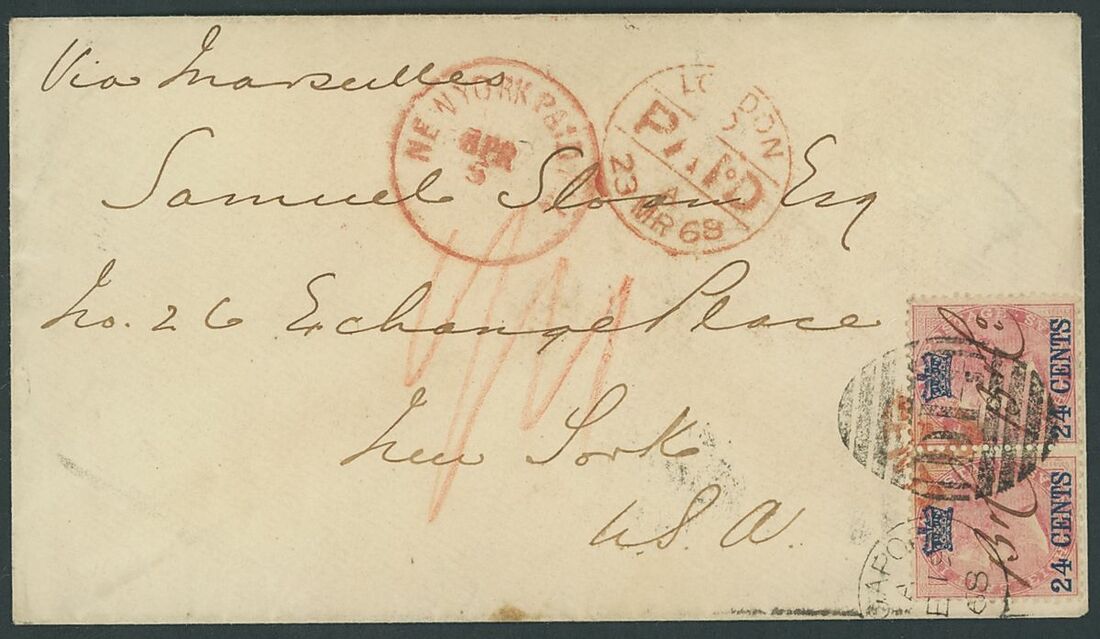 Via Marseilles
NEW YORK PAID ALL
APR
5
LONDON
PAID
A
23 MR 68
Samuel Sloan Esq
No. 26 Exchange Place
New York
U.S.A.
24 CENTS
24 CENTS
68